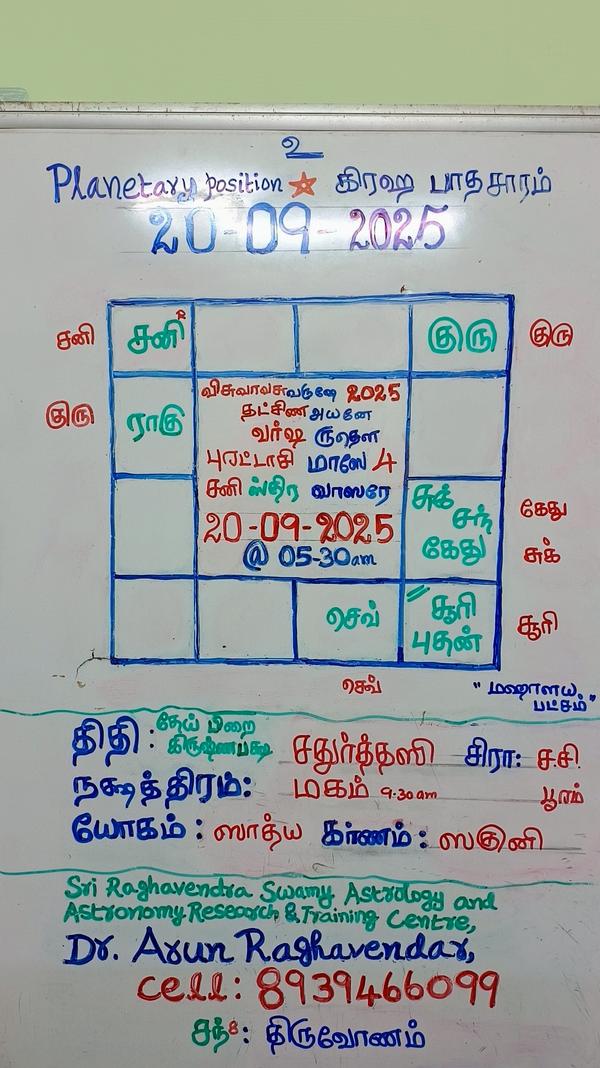 உ
Planetary position கிரஹ பாதசாரம்
20-09-2025
சனி சனி R குரு குரு
குரு ராகு
விசுவாவசு வருஷே 2025
தட்சிண அயனே
வர்ஷ ருதௌ
புரட்டாசி மாஸே 4
சனி ஸ்திர வாஸரே
20-09-2025
@ 05-30am
சுக் சந் கேது
கேது
சுக்
செவ் சூரி புதன் சூரி
செவ்
"மஹாளய பட்சம்"
திதி: தேய்பிறை கிருஷ்ணபக்ஷ சதுர்த்தஸி சிரா: ச.சி.
நக்ஷத்திரம்: மகம் 9:30am பூரம்
யோகம்: ஸாத்ய கரணம்: ஸகுனி
Sri Raghavendra Swamy Astrology and
Astronomy Research & Training Centre,
Dr. Arun Raghavendar,
cell: 8939466099
சந் 8: திருவோணம்